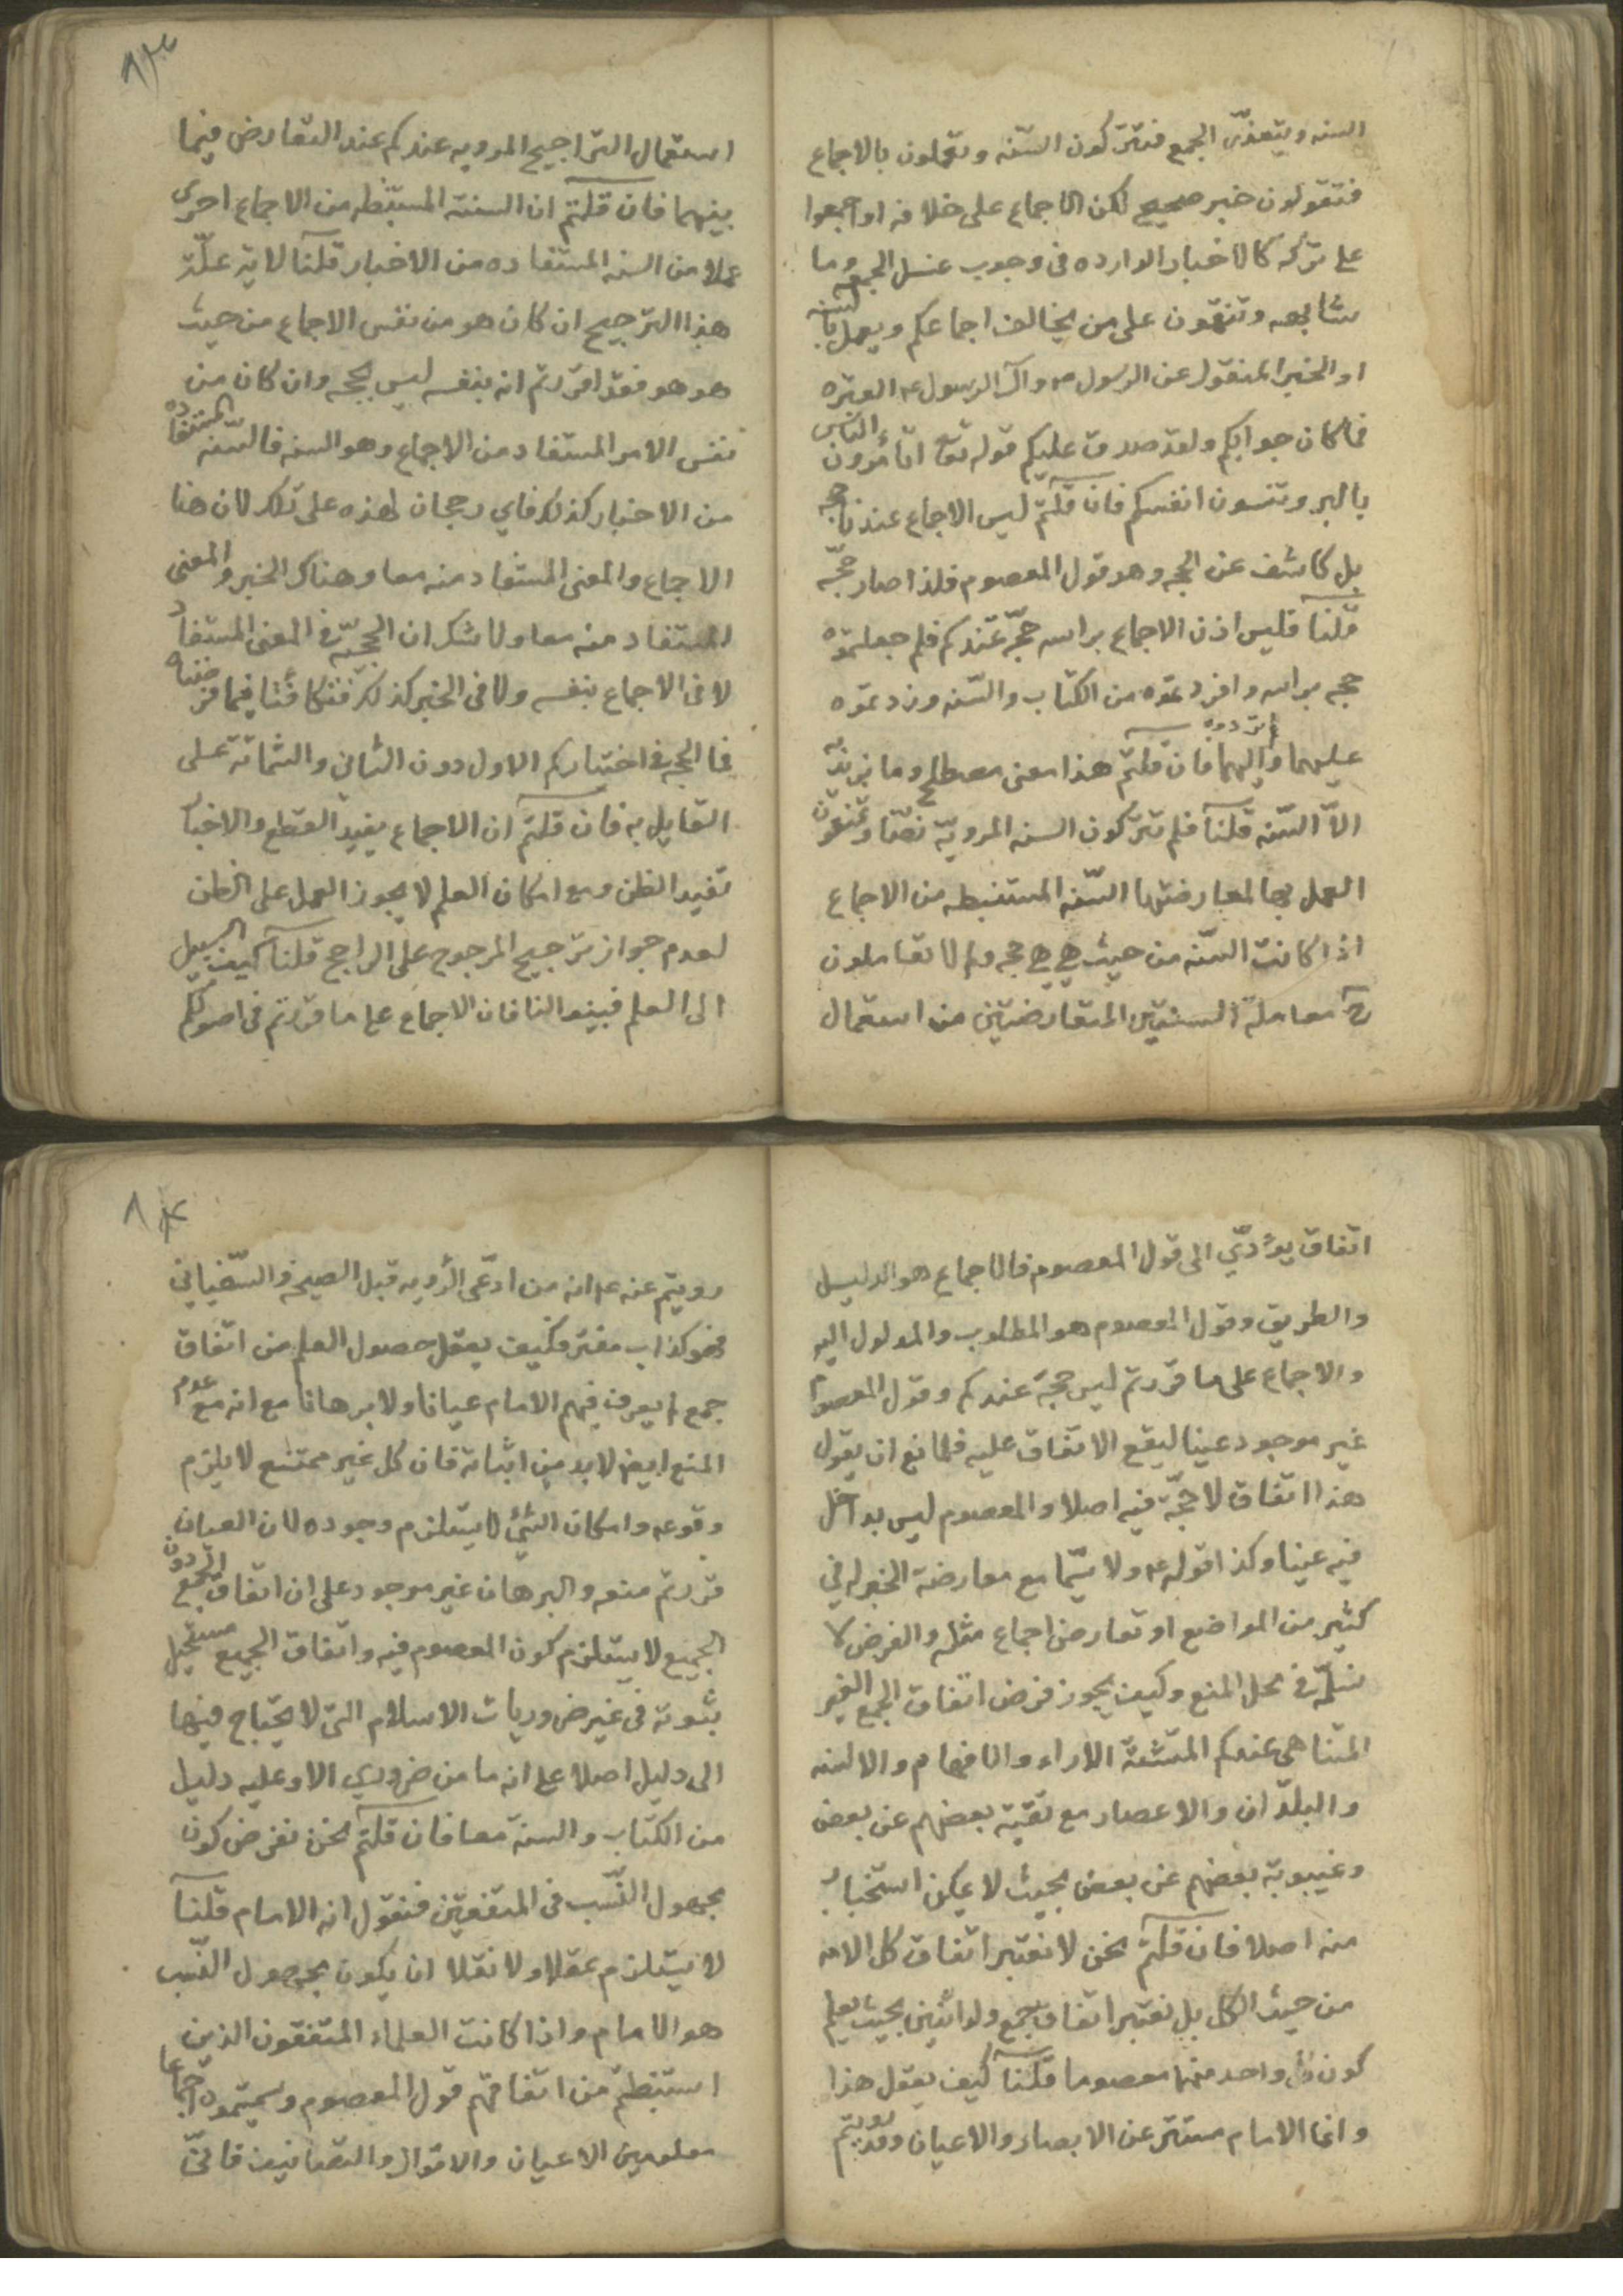 السنه ويتعذّر الجمع فتتركون السّنه وتعملون بالاجماع
فتقولون خبر صحيح لكن الاجماع على خلافه او اجمعوا
على تركه كالاخبار الوارده فى وجوب غسل الجمعه وما
شابهه وتنقمون على من يخالف اجماعكم ويعمل بالسنه
او الخبر المنقول عن الرسول ص وآل الرسول ع العتره
فما كان جوابكم ولقد صدق عليكم قوله تعا اتأمرون الناس
بالبر وتنسون انفسكم فان قلتم ليس الاجماع عندنا حجه
بل كاشف عن الحجه وهو قول المعصوم فلذا صار حجّه
قلنا فليس اذن الاجماع براسه حجّة عندكم فلم جعلتموه
حجه براسه وافردتموه من الكتاب والسّنه وزدتموه
عليهما واليهما فان قلتم هذا معنى مصطلح وما نريد به
الاّ السّنه قلنا فلم تتركون السنه المرويّة نصّا وتمنعون
العمل بها لمعارضتها السّنه المستنبطه من الاجماع
اذا كانت السّنه من حيث هي هي حجه ولم لا تعاملون
ح معاملة السنتين المتعارضتين من استعمال
استعمال التراجيح المرويه عندكم عند التعارض فيما
بينهما فان قلتم ان السنة المستنبطه من الاجماع احرى
عملا من السنه المستفاده من الاخبار قلنا لاية علّة
هذا الترجيح ان كان هو من نفس الاجماع من حيث
هو هو فقد اقررتم انه بنفسه ليس بحجه وان كان من
نفس الامر المستفاد من الاجماع وهو السنه فالسّنه المستفاده
من الاخبار كذلك فاي رجحان لهذه على تلك لان هنا
الاجماع والمعنى المستفاد منه معا وهناك الخبر والمعنى
المستفاد منه معا ولا شك ان الحجيّة فى المعنى المستفاد
لا فى الاجماع بنفسه ولا فى الخبر كذلك فتكافئا فيما فرضناه
فما الحجه فى اختياركم الاول دون الثانى والشماتة على
القايل به فان قلتم ان الاجماع يفيد القطع والاخبار
تفيد الظن ومع امكان العلم لا يجوز العمل على الظن
لعدم جواز ترجيح المرجوح على الراجح قلنا كيف السبيل
الى العلم فبينوا لنا فان الاجماع على ما قررتم فى اصولكم
اتفاق يؤدّي الى قول المعصوم فالاجماع هو الدليل
والطريق وقول المعصوم هو المطلوب والمدلول اليه
والاجماع على ما قررتم ليس حجة عندكم وقول المعصوم
غير موجود عينا ليقع الاتفاق عليه فلمانع ان يقول
هذا اتفاق لا حجّة فيه اصلا والمعصوم ليس بداخل
فيه عينا وكذا قوله ع ولا سيّما مع معارضة الخبر له في
كثير من المواضع او تعارض اجماع مثله والفرض لا
نسلّمه فى محل المنع وكيف يجوز فرض اتفاق الجمع الغير
المتناهي عندكم المتشتة الاراء والافهام والالسنه
والبلدان والاعصار مع تقية بعضهم عن بعض
وغيبوبة بعضهم عن بعض بحيث لا يمكن استخبار
منه اصلا فان قلتم نحن لا نعتبر اتفاق كل الامه
من حيث الكل بل نعتبر اتفاق جمع ولو اثنين بحيث يعلم
كون كل واحد منهما معصوما قلنا كيف يعقل هذا
وانما الامام مستتر عن الابصار والاعيان وقد رويتم
رويتم عنه ع انه من ادّعى الرؤيه قبل الصيحه والسّفياني
فهو كذاب مفتر وكيف يعقل حصول العلم من اتفاق
جمع لم يعرف فيهم الامام عيانا ولا برهانا مع انه مع عدم
المنع ايض لا بد من اثباته فان كل غير ممتنع لا يلزم
وقوعه وامكان الشئ لا يستلزم وجوده لان العيان
قررتم منعه والبرهان غير موجود على ان اتفاق الجمع دون
الجميع لا يستلزم كون المعصوم فيه واتفاق الجميع مستحيل
ثبوته فى غير ضروريات الاسلام التى لا يحتاج فيها
الى دليل اصلا على انه ما من ضروري الا وعليه دليل
من الكتاب والسنة معا فان قلتم نحن نفرض كون
مجهول النّسب فى المتفقين فنقول انه الامام قلنا
لا يستلزم عقلا ولا نقلا ان يكون مجهول النّسب
هو الامام واذا كانت العلماء المتفقون الذين
استنبطتم من اتفاقهم قول المعصوم وسميتموه اجماعا
معلومين الاعيان والاقوال والتصانيف فانّى